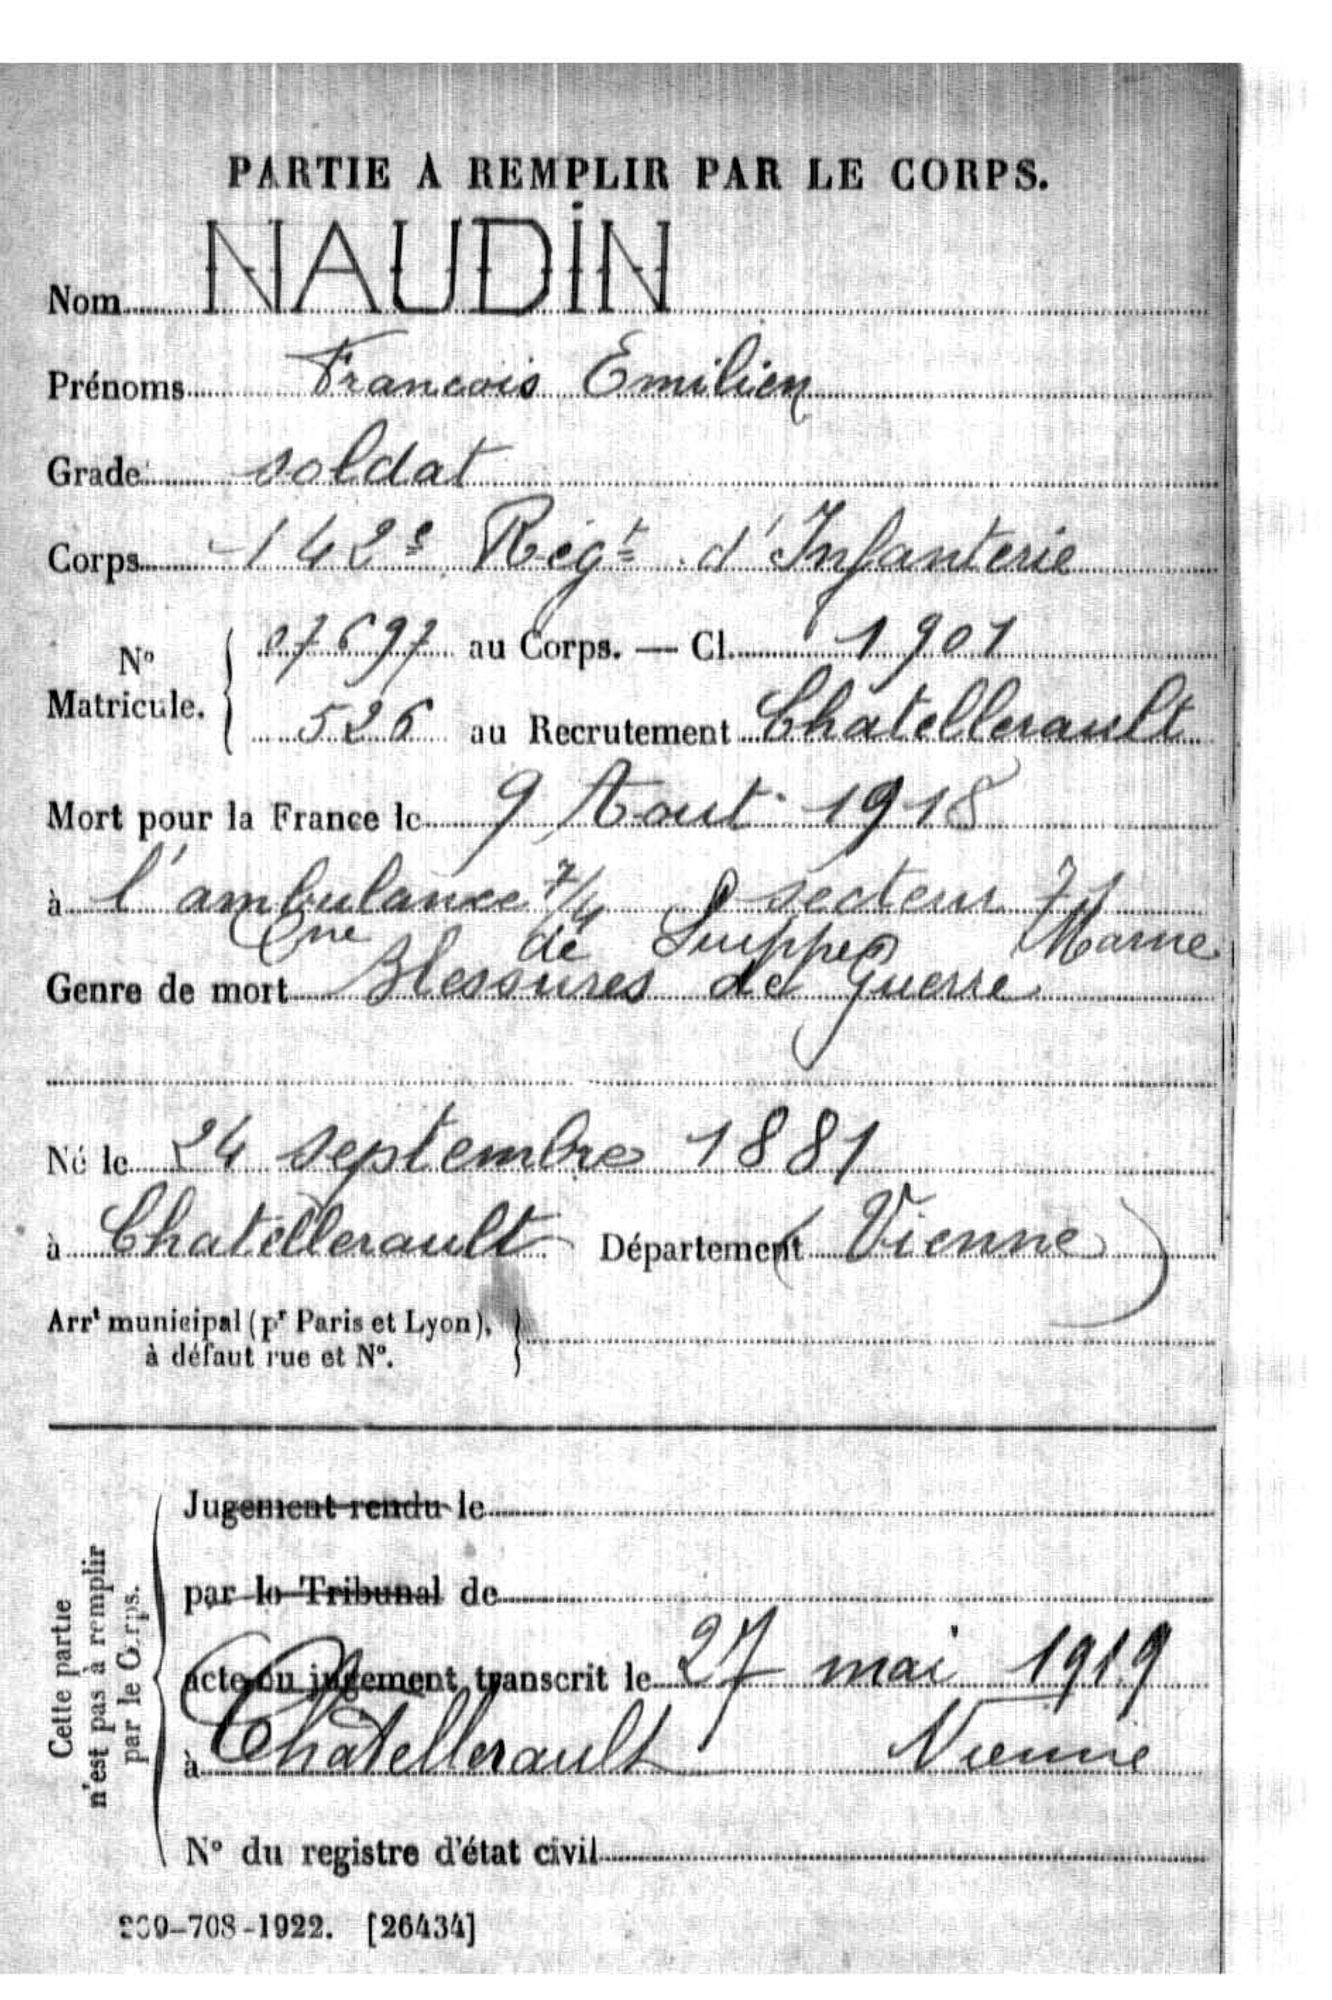 PARTIE À REMPLIR PAR LE CORPS.
Nom NAUDIN
Prénoms Francois Emilien
Grade soldat
Corps 142e Régt d'Infanterie
No Matricule. { 07697 au Corps. — Cl. 1901
526 au Recrutement Chatellerault
Mort pour la France le 9 Aout 1918
à l'ambulance 7/4 secteur 71
Cne de Suippes Marne
Genre de mort Blessures de Guerre
Né le 24 septembre 1881
à Chatellerault Département (Vienne)
Arrt municipal (pr Paris et Lyon),
à défaut rue et No.
Cette partie
n'est pas à remplir
par le Corps.
Jugement rendu le
par le Tribunal de
acte ou jugement transcrit le 27 mai 1919
à Chatellerault Vienne
No du registre d'état civil
-708-1922. [26434]